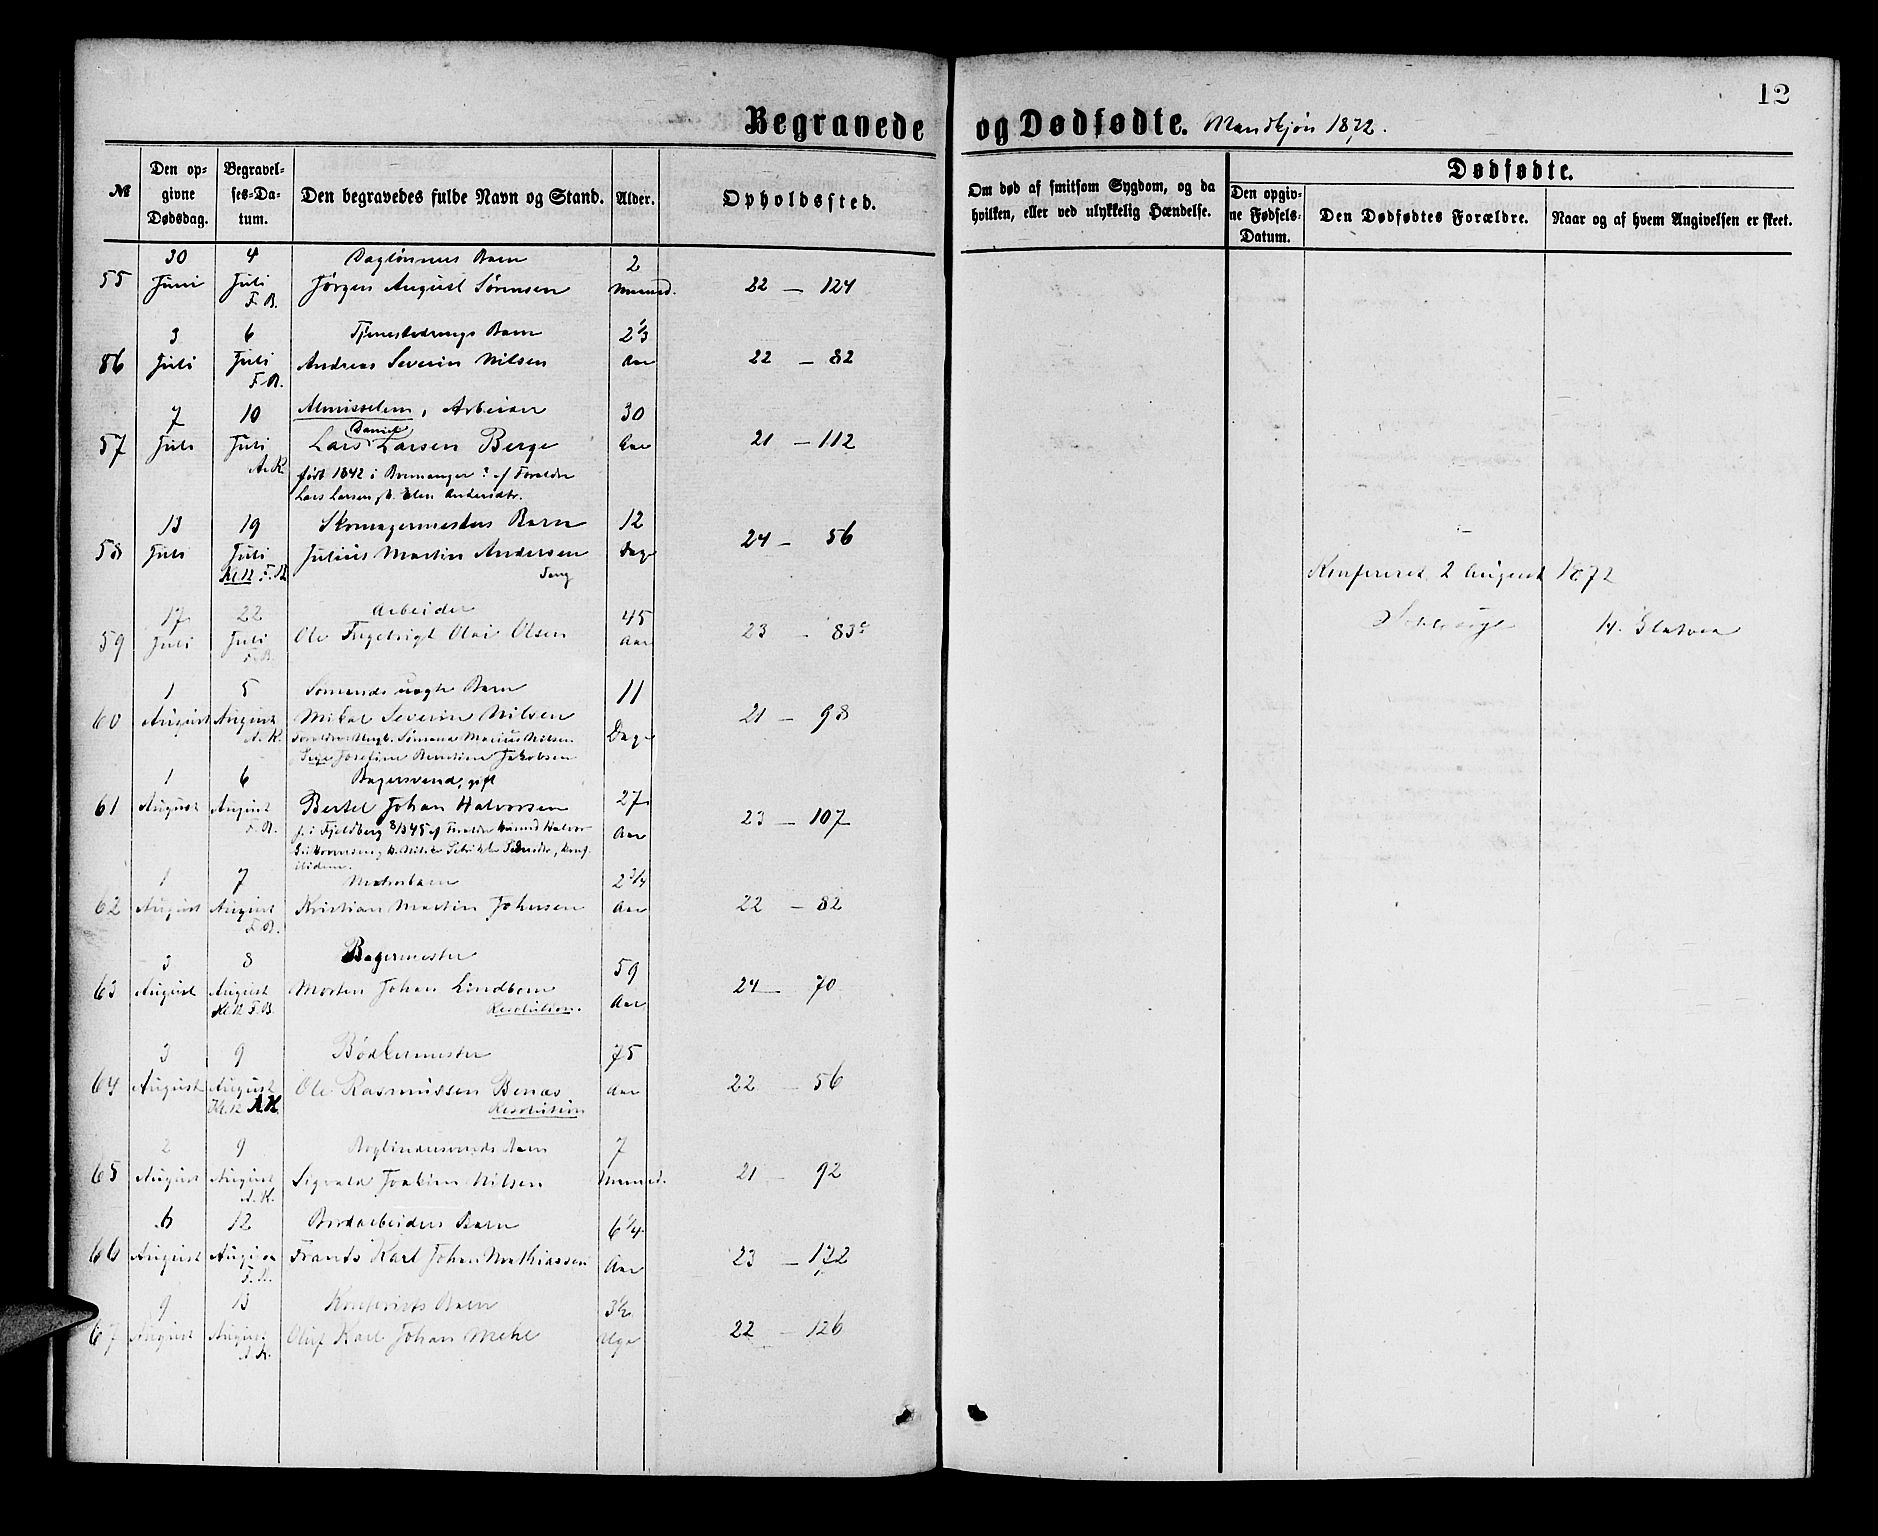 12
Begravede og Dødfødte. Mandkjøn 1872.
№
Den opgivne Dødsdag.
Begravelses-Datum.
Den begravedes fulde Navn og Stand.
Alder.
Opholdssted.
Om død af smitsom Sygdom, og da hvilken, eller ved ulykkelig Hændelse.
Dødfødte.
Den opgivne Fødsels-Datum.
Den Dødfødtes Forældre.
Naar og af hvem Angivelsen er skeet.
30 4 Daglønners Barn 2
55 Juni Juli Jørgen August Sørensen Maaned. 22 — 124
F. B.
3 6 Tjenestedrengs Barn 2 1/3
86 Juli Juli Andreas Severin Nilsen Aar 22 — 82
F. B.
7 10 Almisselem, Arbeider 30
Daniel
57 Juli Juli Lars Larsen Berge Aar 21 — 112
A. K.
født 1842 i ? af Foreldre
Lars Larsen
13 19 Skomagermesters Barn 12
58 Juli Juli Julius Martin Andersen Dage 24 — 56
Kl. 12 F. B.
Konfereret 2 August 1872
17 22 Arbeider 45
59 Juli Juli Ole Olai Olsen Aar 23 — 83c
F. B.
1 5 Sømands Barn 11
60 August August Mikal Severin Nilsen Dage 21 — 98
A. K. Foreldre Sømand Marius Nilsen
Josefine Berntine Jakobsen
1 6 Bagersvend, gift
61 August August Bertel Johan Halvorsen 27 Aar 23 — 107
F. B. f. i Fjeldberg 1845 af Foreldre
1 7 2 3/4
62 August August Kristian Martin Johnsen Aar 22 — 82
F. B.
3 8 Bagermester 59
63 August August Morten Johan Lindbom Aar 24 — 70
Kl. 12 F. B. Resolution.
3 9 Bødkermester 75
64 August August Ole Rasmussen Benæs Aar 22 — 56
Kl. 12 A K Resolution
2 9 Barn 7
65 August August Sigvald Joakim Nilsen Maaned. 21 — 92
A. K.
6 12 Bordarbeiders Barn 6 1/4
66 August August Frants Karl Johan Mathiassen Aar 23 — 172
9 13 Kontorists Barn 3 1/2
67 August August Oluf Karl Johan Mehl Uge 22 — 126